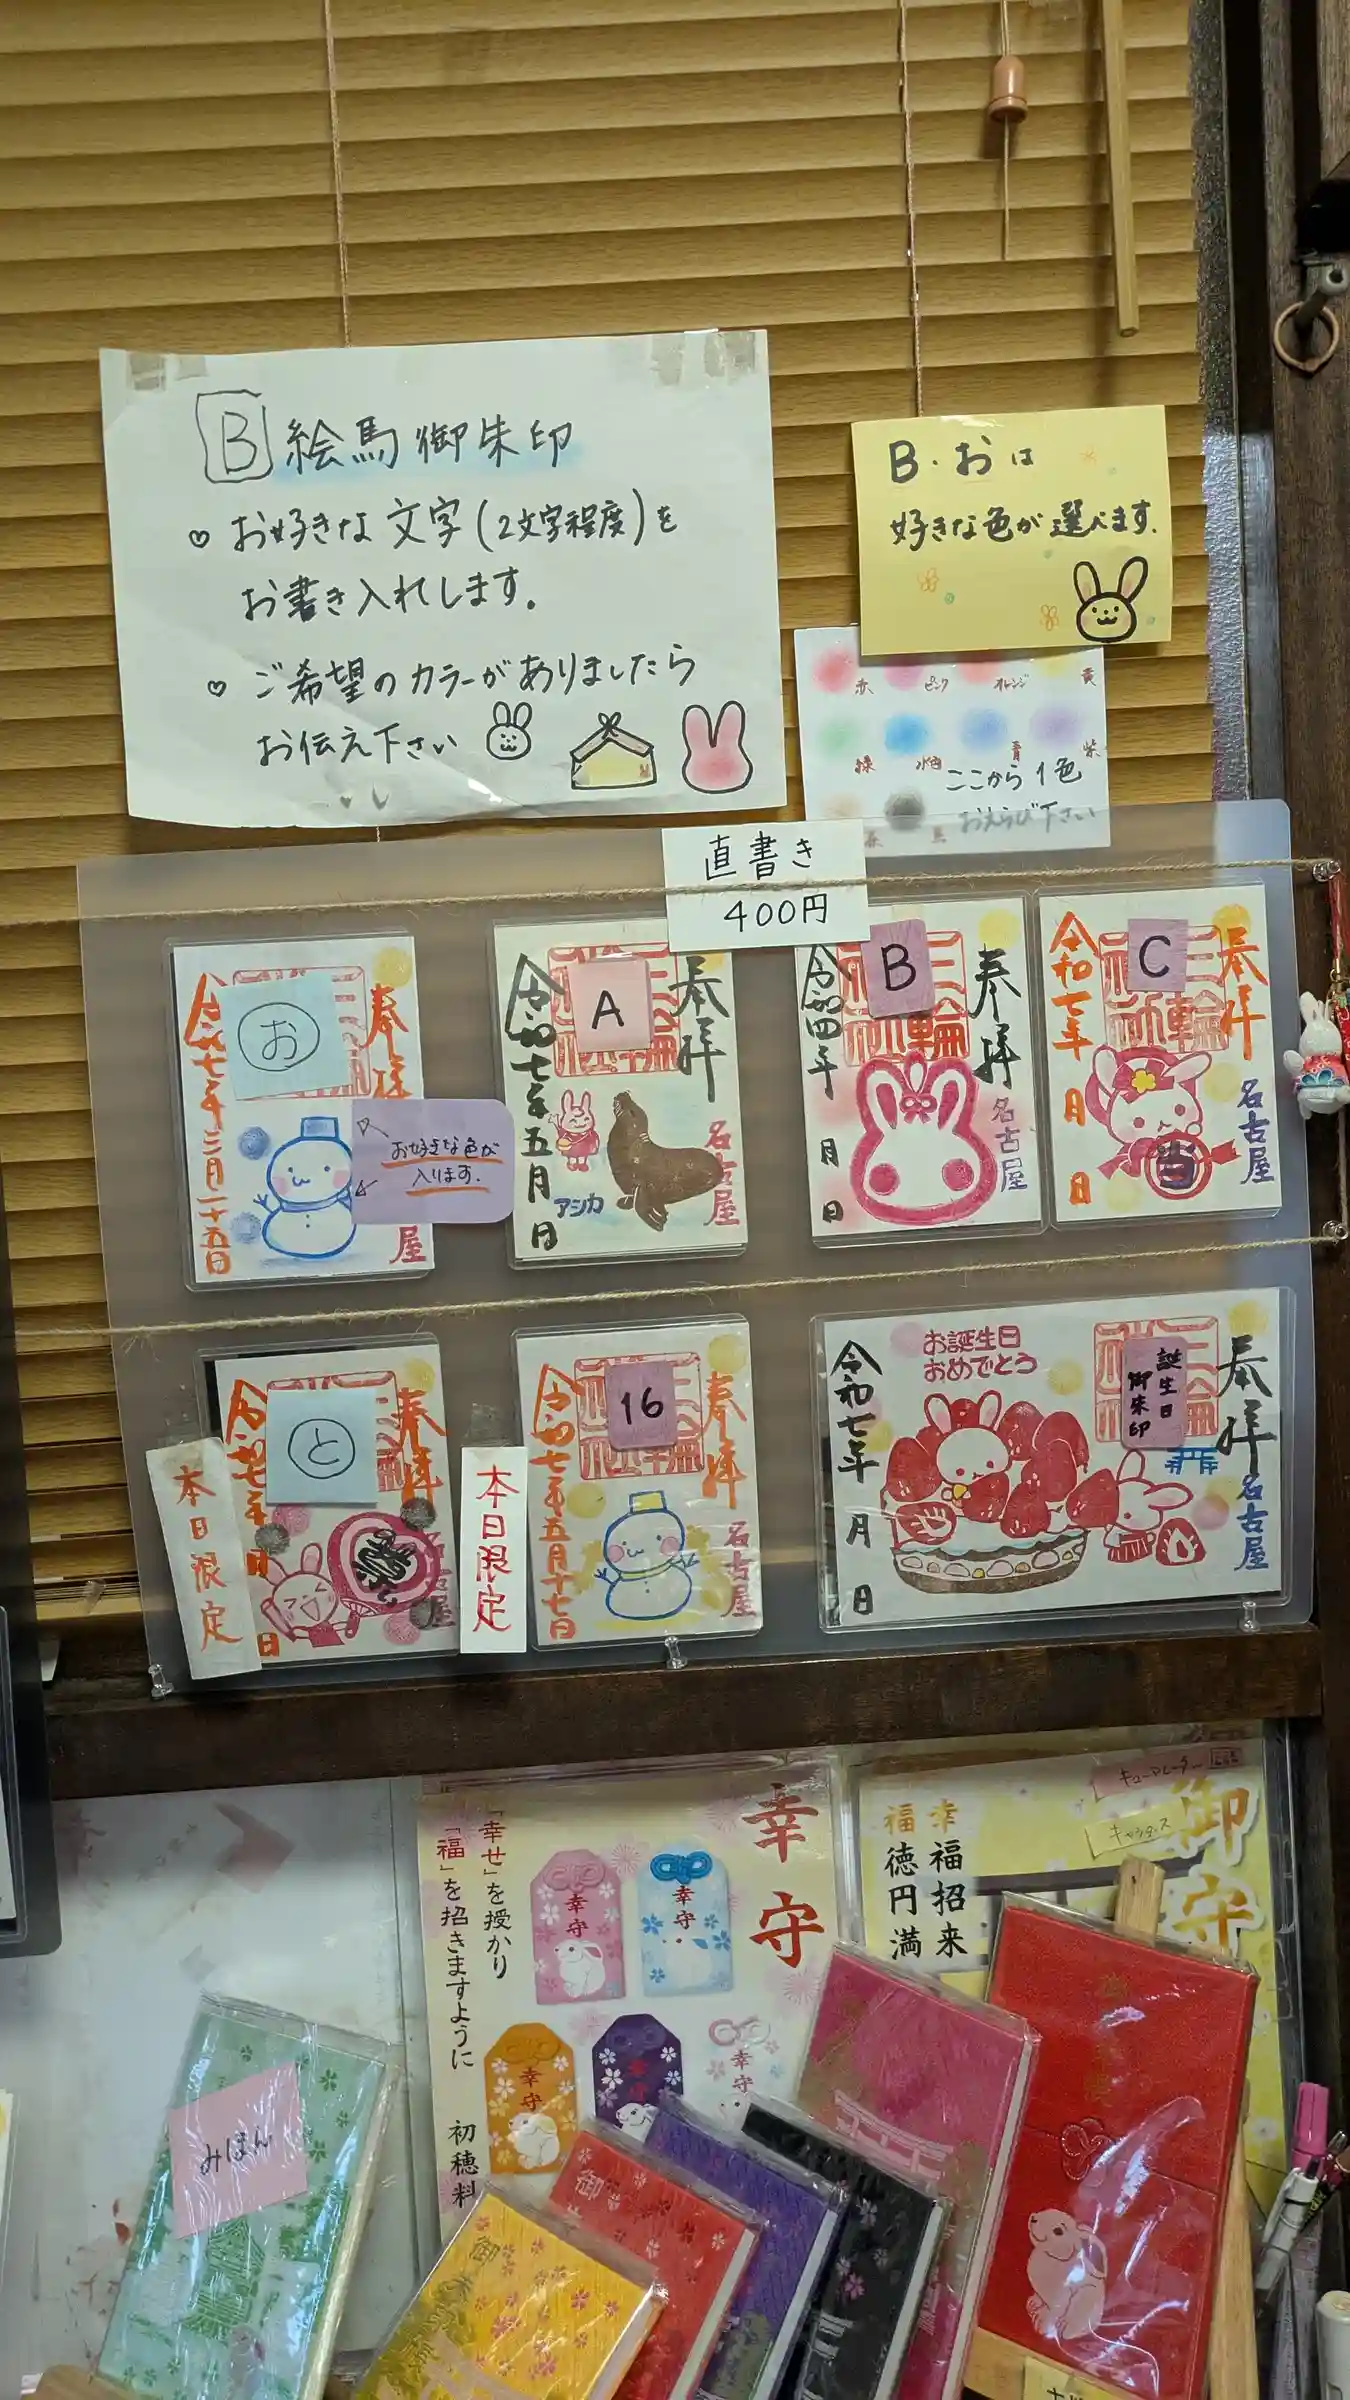 B 絵馬御朱印
♡ お好きな文字(2文字程度)を
お書き入れします。
♡ ご希望のカラーがありましたら
お伝え下さい
B・おは
好きな色が選べます.
赤 ピンク オレンジ 黄
緑 水色 青 紫
茶 黒
ここから1色
おえらび下さい
直書き
400円
お
奉拝
令和七年三月二十五日
お好きな色が
入ります.
屋
A
奉拝
令和七年五月 日
アシカ
名古屋
B
奉拝
令和四年 月 日
名古屋
C
奉拝
令和七年 月 日
名古屋
当
と
奉拝
令和七年 月 日
本日限定
16
奉拝
令和七年五月十七日
名古屋
本日限定
お誕生日
おめでとう
誕生日
御朱印
奉拝
令和七年 月 日
名古屋
幸守
「幸せ」を授かり
「福」を招きますように
初穂料
幸守
幸守
幸守
幸守
幸守
御守
幸福招来
福徳円満
みほん
御
御